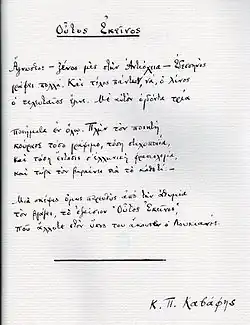 Οὗτος Ἐκεῖνος
Ἄγνωστος – ξένος μὲς στὴν Ἀντιόχεια – Ἐδεσσηνὸς
γράφει πολλά. Καὶ τέλος πάντων, νά, ὁ λίνος
ὁ τελευταῖος ἔγινε. Μὲ αὐτὸν ὀγδόντα τρία
ποιήματα ἐν ὅλῳ. Πλὴν τὸν ποιητὴ
κούρασε τόσο γράψιμο, τόση στιχοποιΐα,
καὶ τόση ἔντασις σ' ἑλληνικὴ φρασιολογία,
καὶ τώρα τὸν βαραίνει πιὰ τὸ κάθε τί.–
Μιὰ σκέψις ὅμως παρευθὺς ἀπὸ τὴν ἀθυμία
τὸν βγάζει, τὸ ἐξαίσιον "Οὗτος Ἐκεῖνος,"
ποὺ ἄλλοτε στὸν ὕπνο του ἄκουσεν ὁ Λουκιανός.
Κ. Π. Καβάφης